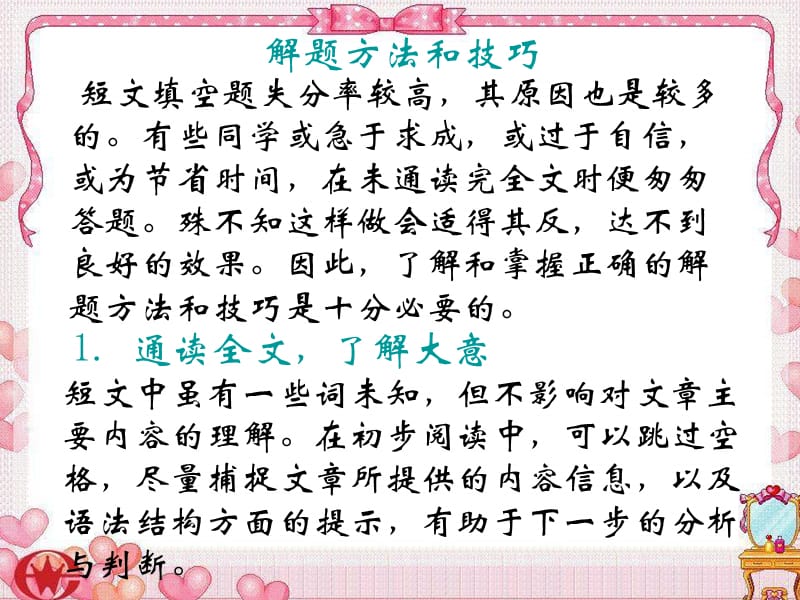 解题方法和技巧
短文填空题失分率较高，其原因也是较多
的。有些同学或急于求成，或过于自信，
或为节省时间，在未通读完全文时便匆匆
答题。殊不知这样做会适得其反，达不到
良好的效果。因此，了解和掌握正确的解
题方法和技巧是十分必要的。
1. 通读全文，了解大意
短文中虽有一些词未知，但不影响对文章主
要内容的理解。在初步阅读中，可以跳过空
格，尽量捕捉文章所提供的内容信息，以及
语法结构方面的提示，有助于下一步的分析
与判断。